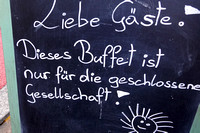 Liebe Gäste!
Dieses Buffet ist
nur für die geschlossene
Gesellschaft!